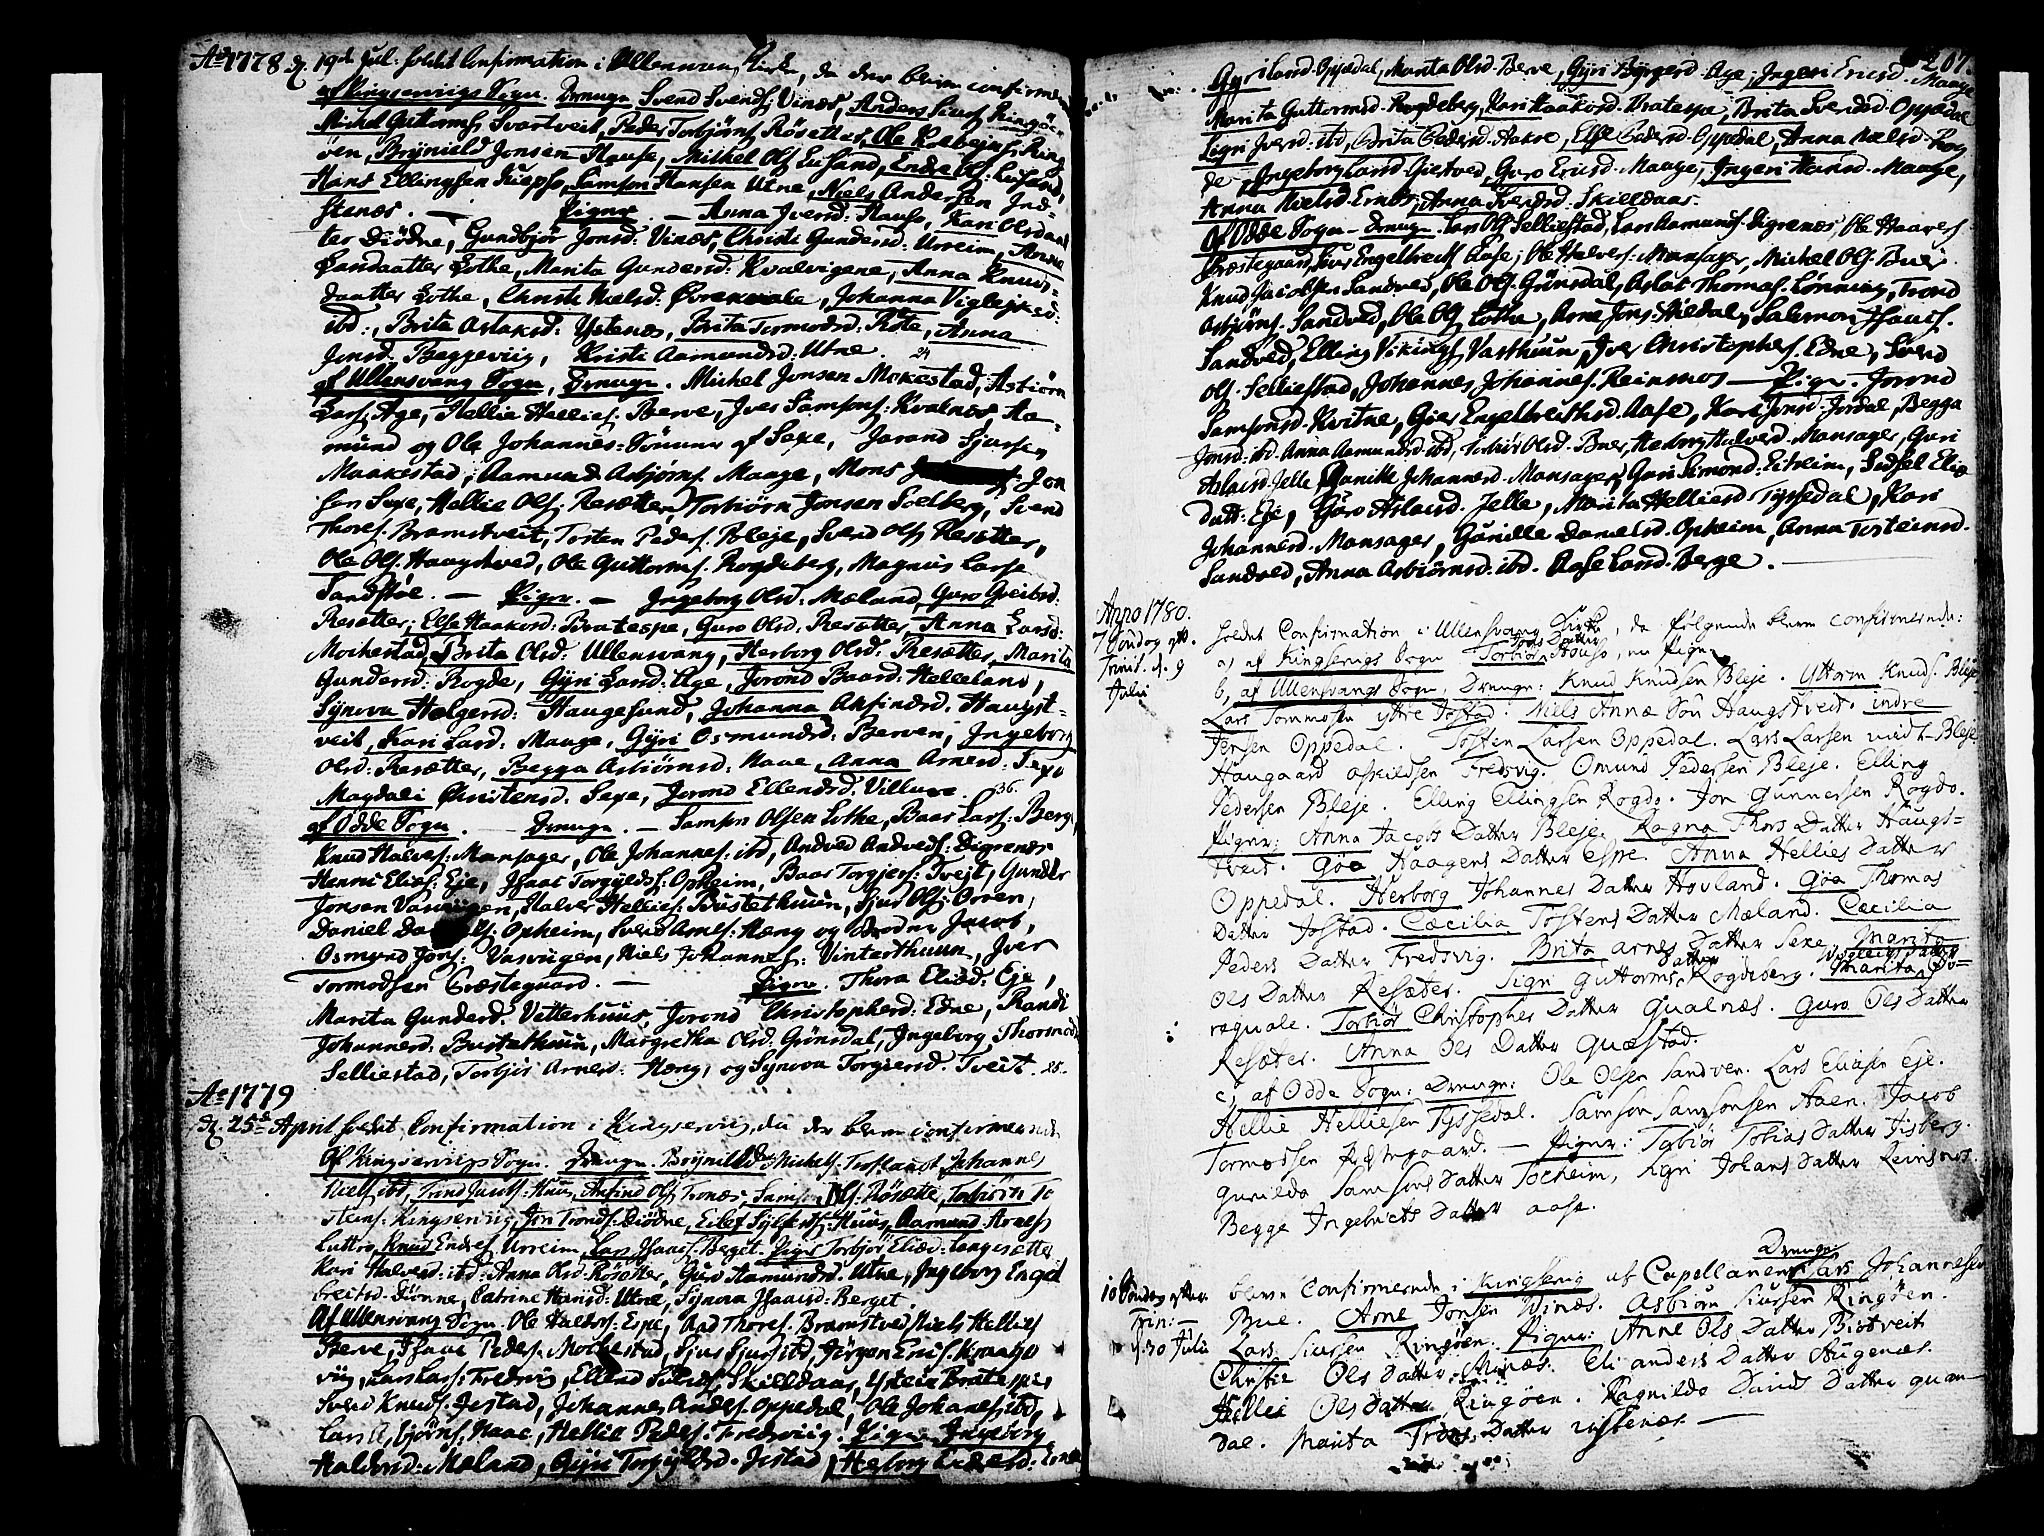 Ao 1778 d. 19de Jul: holdt Confirmation i Ullensvang Kirke, da der bleve confirmerede
af Kingservigs Sogn. Drenge. Svend Svends: Vinæs, Anders Siurs: Ringøen
Michel Guttorms: Svartveit, Peder Torbjørns: Røsetter, Ole Kolbejns: Ring
øen, Brynield Jonsen Hause, Michel Ols: Eusand, Endre Ols: Lusand,
Hans Ellingsen Kiepso, Samson Hansen Utne, Niels Andersen Ind-
stenæs. — Piger. — Anna Iversd: Hauso, Kari Olsdaat
ter Diødne, Gundbjør Jonsd: Vinæs, Christi Gundersd: Urreim, Anna
daatter Lothe, Marita Gundersd: Kvalvigene, Anna Knuds-
daatter Lothe, Christi Nielsd: Øvrenvale, Johanna Vigleiksd:
ibd:, Brita Aslaksd: Ystenæs, Brita Tormodsd: Røte, Anna
Jonsd: Beggeviig, Kristi Aamundsd: Utne. 24
af Ullensvang Sogn, Drenge. Michel Jonsen Mokestad, Asbiørn
Lars: Age, Hellie Hellies: Berve, Iver Samsons: Kvalnæs Aa-
mund og Ole Johannes-Sønner af Sexe, Jorand Sjursen
Maakestad, Aamund Asbjørns: Maage, Mons Jon
sen Sexe, Hellie Ols: Resætter, Torbiørn Jonsen Solberg, Svend
Thores: Bramstveit, Tosten Peders: Bleje, Svend Ols: Resætter,
Ole Ols: Haugstved, Ole Guttorms: Rogdeberg, Magnus Larse
Sandstøe. — Piger. — Ingeborg Olsd: Mæland, Guro Greibsd:
Resætter, Else Haakonsd: Bratespe, Guro Olsd: Resætter, Anna Larsd:
Moikestad, Brita Olsd: Ullensvang, Herborg Olsd: Resætter, Marita
Gundersd: Rogde, Gyri Larsd: Age, Jorond Baard: Helleland,
Synova Helgersd: Haugesund, Johanna Anfindsd: Haugst-
veit, Kari Larsd: Maage, Gyri Osmundsd: Berven, Ingeborg
Olsd: Resætter, Begga Asbiørnsd: Naae, Anna Arnesd: Sexe
Magdali Christensd: Sexe, Jorond Ellendsd: Villure. 36.
af Odde Sogn. — Drenge. — Samson Olsen Lothe, Baar Lars: Berge
Knud Halvors: Mansager, Ole Johannes: ibd, Andved Andveds: Digrenæs
Henric Elias: Eje, Isaac Torgylds: Opheim, Baar Torgiers: Tveit, Gunder
Jonsen Vasvigen, Halvor Hellies: Bustethuun, Siur Ols: Orren,
Daniel Opheim, Svend Arnes: Hæng og Broder Jacob,
Osmund Jons: Vasviigen, Niels Johannes: Vinterthuun, Iver
Tormodsen Præstegaard. — Piger. Thora Eliæd: Eje,
Marita Gunderd: Vetterhuus, Jorond Christopherd: Edne, Randi
Johannesd: Bustethuun, Margretha Olsd: Grønsdal, Ingeborg Thormods
Selliestad, Torbjør Arnesd: Hæng, og Synova Torgiersd: Tveit. 25.
Ao 1779
d. 25de April holdt Confirmation i Kingservig, da der bleve confirmerede
Af Kingservigs Sogn. Drenge. Brynilld Michels: Johannes
Niels: ibd, Trond Jacobs: Huus, Anfind Ols: Tronæs, Samson Ols: Røsætte, Torbiørn To
stens: Kingservig, Jon Tronds: Diødne, Eilef Huus, Aamund Arnes
Luttro, Knud Endres: Urreim, Lars Isaacs: Berget. Piger Torbjør Eliæd: Langesetter
Kari Halvorsd: ibd: Anna Olsd: Røsætter, Guro Aamundsd: Utne, Ingeborg Engel
breitsd: Diønne, Catrine Hansd: Utne, Synova Isaacsd: Berget.
Af Ullensvang Sogn. Ole Haldors: Espe, Aad Thores: Bramstved, Niels Hellies:
Berve, Isaac Peders: Mockestad, Sjur Sjurs: ibd, Jørgen Erics: Kraage
viig, Lars Lars: Fredsvig, Ellend Skieldaas, Bratespe,
Svend Knuds: Jestad, Johannes Anders: Oppedal, Ole Johanes: ibd,
Lars Bjørns: Naae, Hellie Peders: Fredsviig. Piger Ingeborg
Haldorsd: Mæland, Gyri Torgyldsd: Jestad, Herborg Endresd:
207.
Gyri Larsd. Oppedal, Marita Olsd. Berve, Gyri Byrgesd. Age, Ingeri Ericsd. Maage
Marita Guttormsd. Rogdeberg, Kari Haakonsd. Bratespe, Brita Svendsd. Oppedal
Sigri Iversd. ibd, Brita Pedersd. Aakre, Else Pedersd. Oppedal, Anna Nielsd. Rog
de, Ingeborg Larsd. Giestved, Guro Ericsd. Maage, Ingeri Hansd. Maage,
Anna Nielsd. Ernes, Anna Iversd. Skieldaas.
Af Odde Sogn — Drenge. Lars Ols: Selliestad, Lars Aamunds: Digrenæs, Ole Haavors:
Præstegaard, Engelbrechts: Aase, Ole Halvors: Mansager, Michel Ols: Buer.
Knud Jacobsen Sandved, Ole Ols: Grønsdal, Aslac Thomas: Lønning, Trond
Asbjørns: Sandved, Ole Ols: Lothe, Arne Jons: Hildal, Salomon Isaacs:
Sandved, Elling Vikings: Vasthuun, Iver Christophers: Edne, Svend
Ols: Selliestad, Johannes Johannes: Reinsnos — Piger. Jorond
Samsonsd. Kvitne, Gier Engelbreithsd. Aase, Kari Jonsd. Jordal, Begga
Jonsd. ibd. Anna Aamundsd. ibd, Torbiør Olsd. Buer, Herborg Halversd. Mansager, Guri
Aslacsd. Jelle, Gunille Johannesd. Mansager, Guri Simonsd: Eitreim, Sidsel Eliæ
Datt: Eje, Guro Aslacsd. Jelle, Marita Helliesd. Tyssedal, Kari
Johannesd. Mansager, Gunille Danielsd. Opheim, Anna Tosteinsd.
Sandved, Anna Asbiørnsd. ibd. Aase Larsd. Berge.
Anno 1780.
7 Søndag eft. holdet Confirmation i Ullensvang Kirke, da følgende bleve confirmerede:
Trinit. d. 9 a, af Kingservigs Sogn Torbiør Datter Hauso, en Pige
Julii b, af Ullensvangs Sogn, Drenge: Knud Knudsen Bleje. Uttorm Knuds. Bleje
Lars Tommæsen ytre Jestad. Niels Annæ Søn Haugstveit. indre
Jensen Oppedal. Tosten Larsen Oppedal. Lars Larsen nedt-Bleje
Haagaard Askildsen Fredsvig. Omund Pedersen Bleje. Elling
Pedersen Bleje. Elling Ellingsen Rogde. Jon Gunnersen Rogde.
Piger: Anna Jacobs Datter Bleje. Ragna Thores Datter Haugs-
tveit. Gøa Haagens Datter Espe. Anna Hellies Datter
Oppedal. Herborg Johannes Datter Hovland. Gøa Thomas
Datter Jostad. Cæcilia Tostens Datter Mæland. Cæcilia
Peders Datter Fredsvig. Brita Arnes Datter Sexe. Marita
Ols Datter Resæter. Sigri Guttorms Datter Rogdeberg. Marita Øv-
reqvale. Torbiør Christophers Datter Qualnæs. Guro Ols Datter
Resæter. Anna Ols Datter Quæstad.
c, af Odde Sogn: Drenge: Ole Olsen Sandven. Lars Eliasen Eje.
Hellie Helliesen Tyssedal. Samson Samsonsen Aaen. Jacob
Tormossen Prestegaard. — Piger: Torbiør Tobias Datter Fisberg.
Gunilda Samsons Datter Tocheim, Sigri Johans Datter Reinsnos.
Begge Ingebricts Datter Aase.
Drenge:
10 Søndag efter bleve Confirmerede i Kingservig af Capellanen Lars Johannesen
Trin: — Bue. Arne Jonsen Vinæs. Asbiørn Siursen Ringøen.
d. 30 Julii Lars Siursen Ringøen. Piger: Anne Ols Datter Biotveit
Christi Ols Datter Vinæs. Eli Anders Datter Augenæs.
Hellie Ols Datter Ringøen. Ragnilda Davids Datter quan-
dal. Marita Trons Datter ystenæs. —